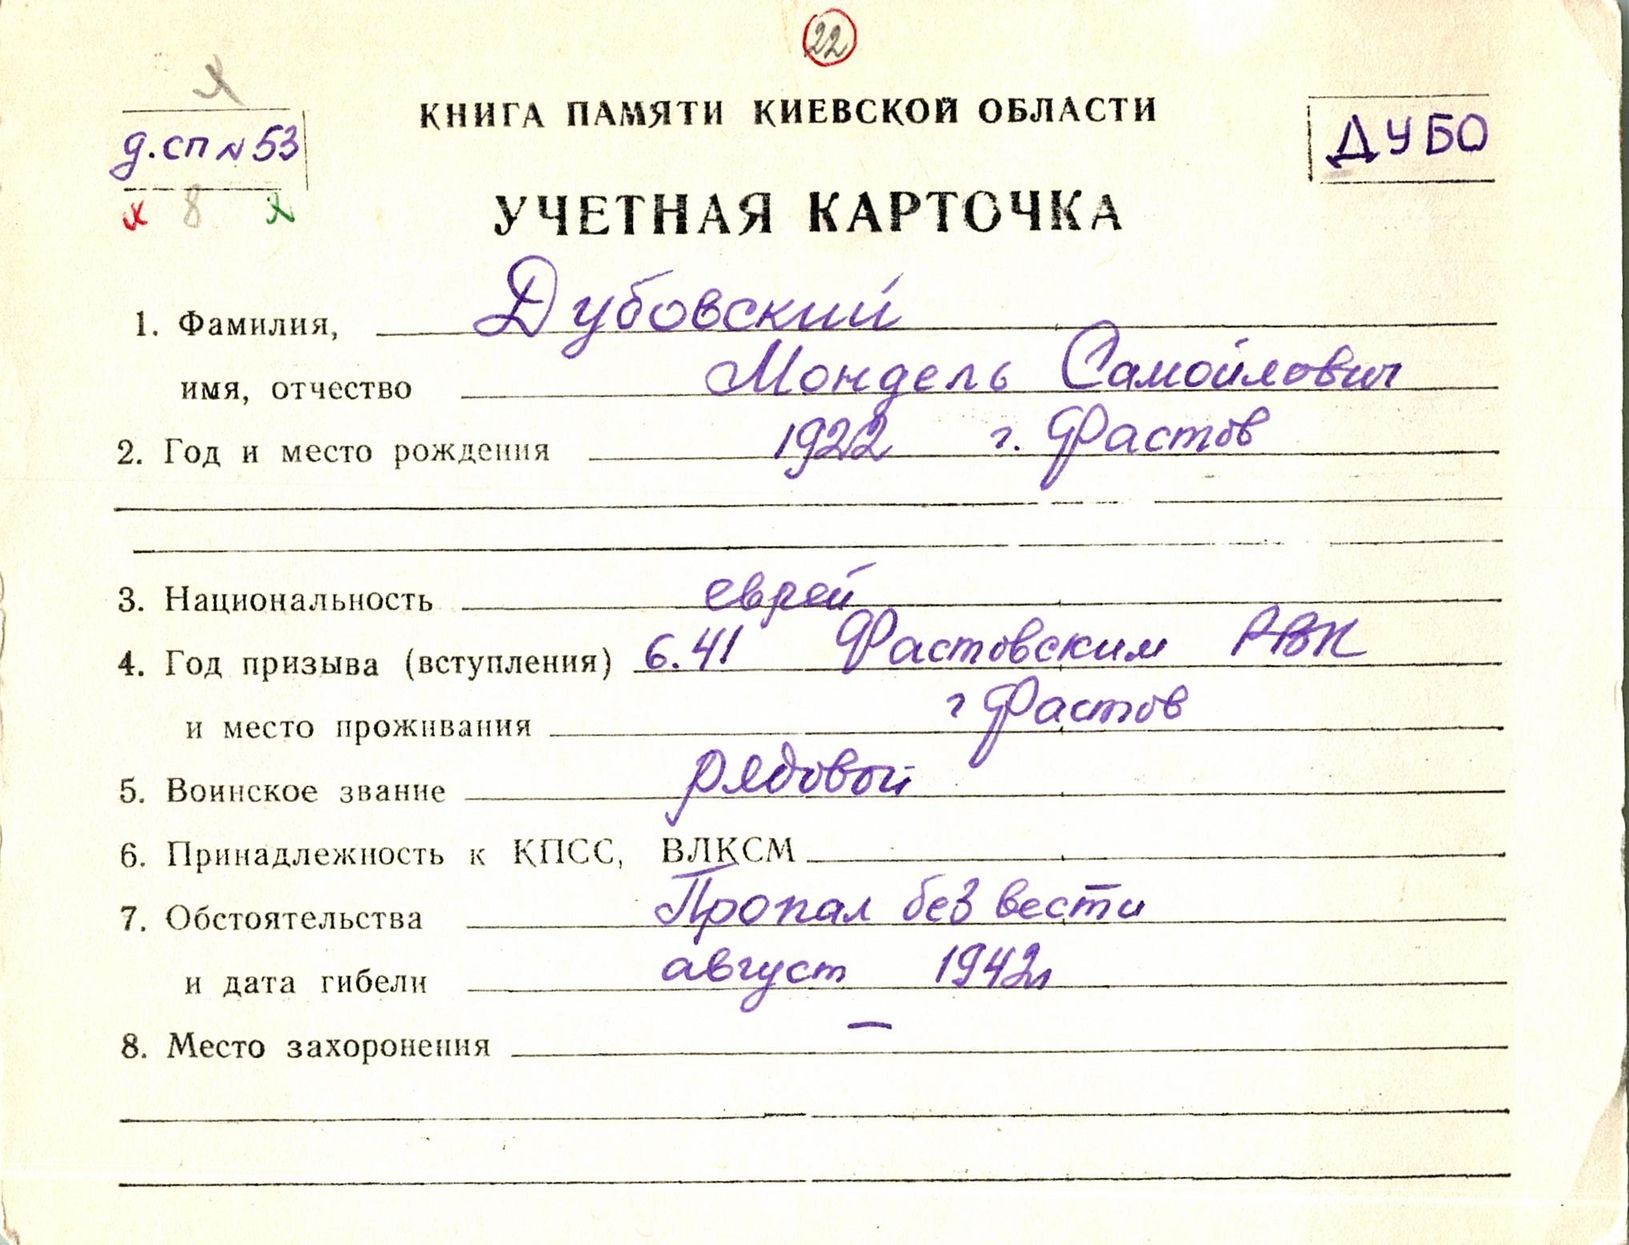 22
х
д.сп N 53
КНИГА ПАМЯТИ КИЕВСКОЙ ОБЛАСТИ
ДУБО
х 8 х
УЧЕТНАЯ КАРТОЧКА
1. Фамилия, Дубовский
имя, отчество Мондель Самойлович
2. Год и место рождения 1922 г. Фастов
3. Национальность еврей
4. Год призыва (вступления) 6.41 Фастовским РВК
и место проживания г Фастов
5. Воинское звание рядовой
6. Принадлежность к КПСС, ВЛКСМ
7. Обстоятельства Пропал без вести
и дата гибели август 1942г
8. Место захоронения –